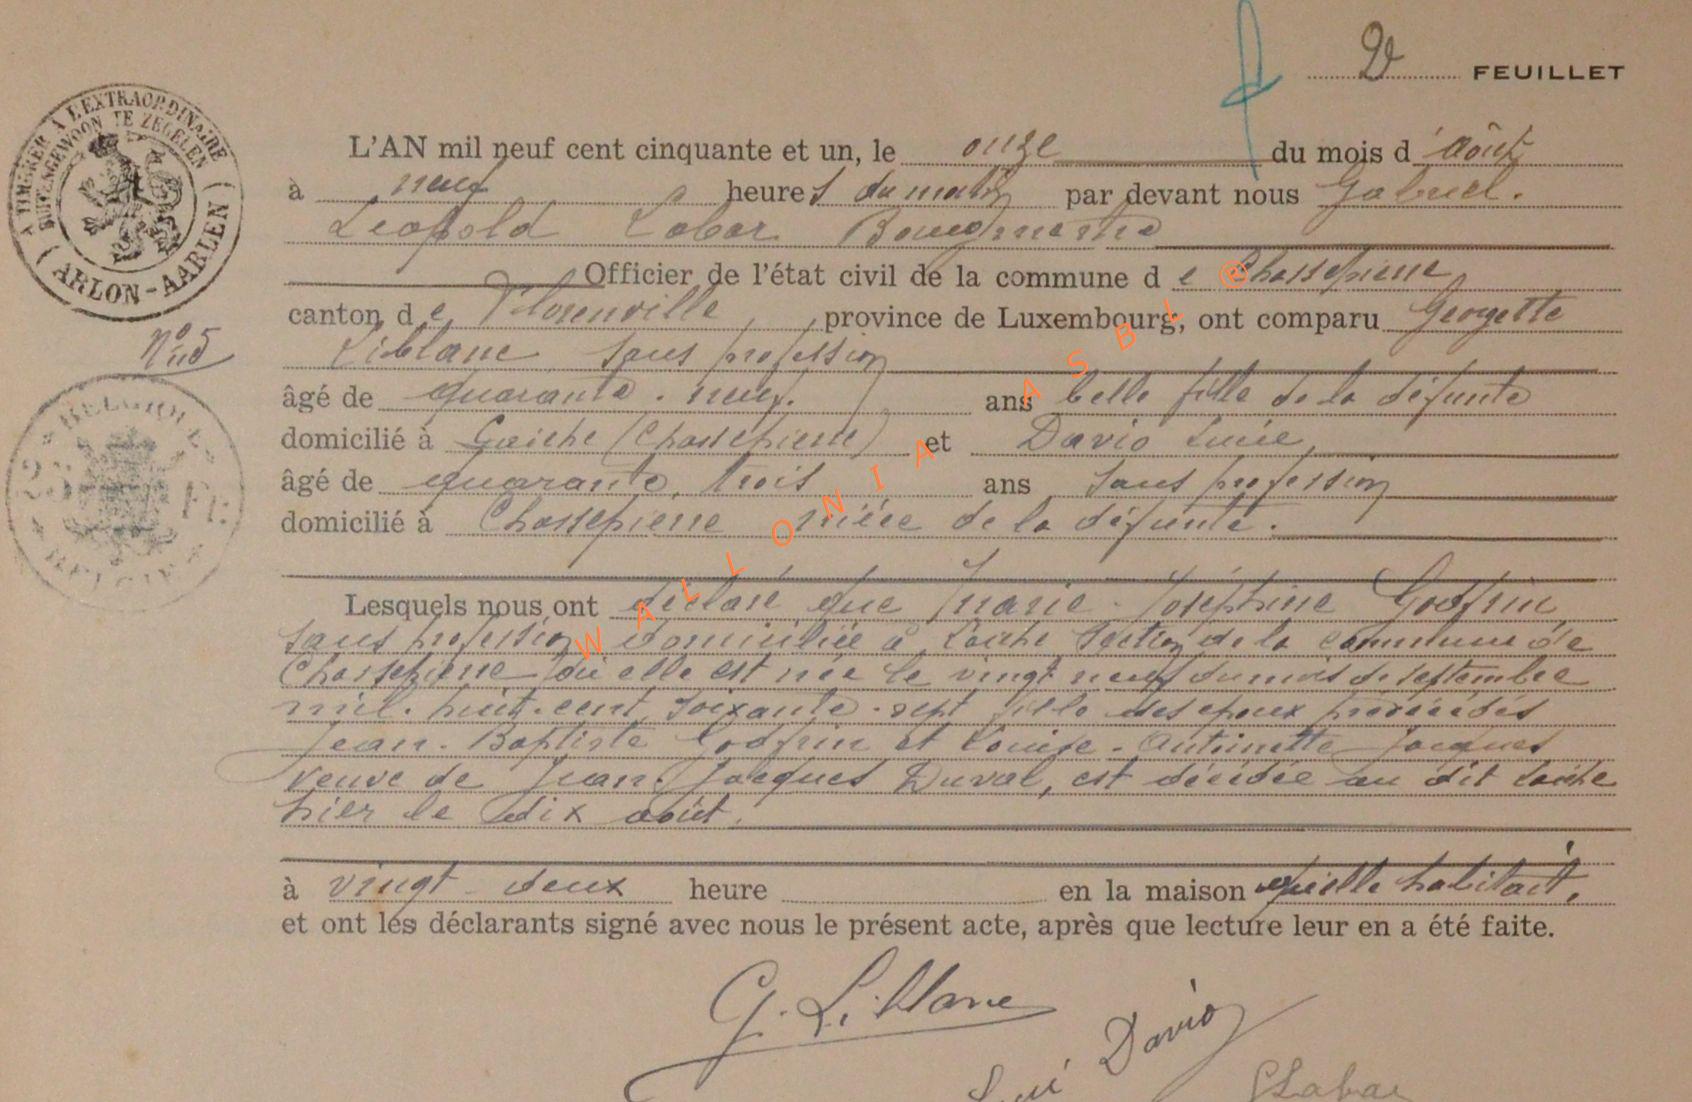 2e FEUILLET
À TIMBRER À L'EXTRAORDINAIRE
BUITENGEWOON TE ZEGELEN
( ARLON - AARLEN )
L'AN mil neuf cent cinquante et un, le onze du mois d'août
à neuf heures du matin par devant nous Gabriel.
Léopold Labar Bourgmestre
Officier de l'état civil de la commune de Chassepierre
canton de Florenville, province de Luxembourg, ont comparu Georgette
N° 5
Liblanc sans profession
âgé de quarante-neuf. ans belle fille de la défunte
BELGIQUE
domicilié à Laiche (Chassepierre) et David Lucie
âgé de quarante-trois ans sans profession
FR
domicilié à Chassepierre nièce de la défunte.
BELGIE
Lesquels nous ont déclaré que Marie-Joséphine Godfrin
sans profession domiciliée à Laiche section de la commune de
Chassepierre où elle est née le vingt neuf du mois de septembre
mil-huit-cent soixante-sept fille des époux prédécédés
Jean-Baptiste Godfrin et Louise-Antoinette Jacques
veuve de Jean-Jacques Duval, est décédée au dit Laiche
hier le dix août.
à vingt-deux heure en la maison qu'elle habitait,
et ont les déclarants signé avec nous le présent acte, après que lecture leur en a été faite.
G. Liblanc
David
GLabar
WALLONIA ASBL ®